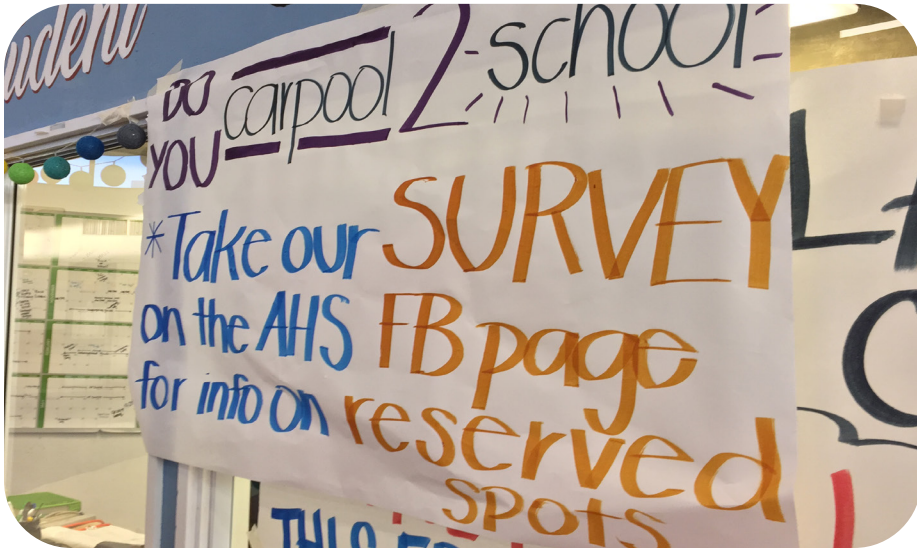 udent
DO YOU carpool 2-school
*Take our SURVEY
on the AHS FB page
for info on reserved
spots
THIS